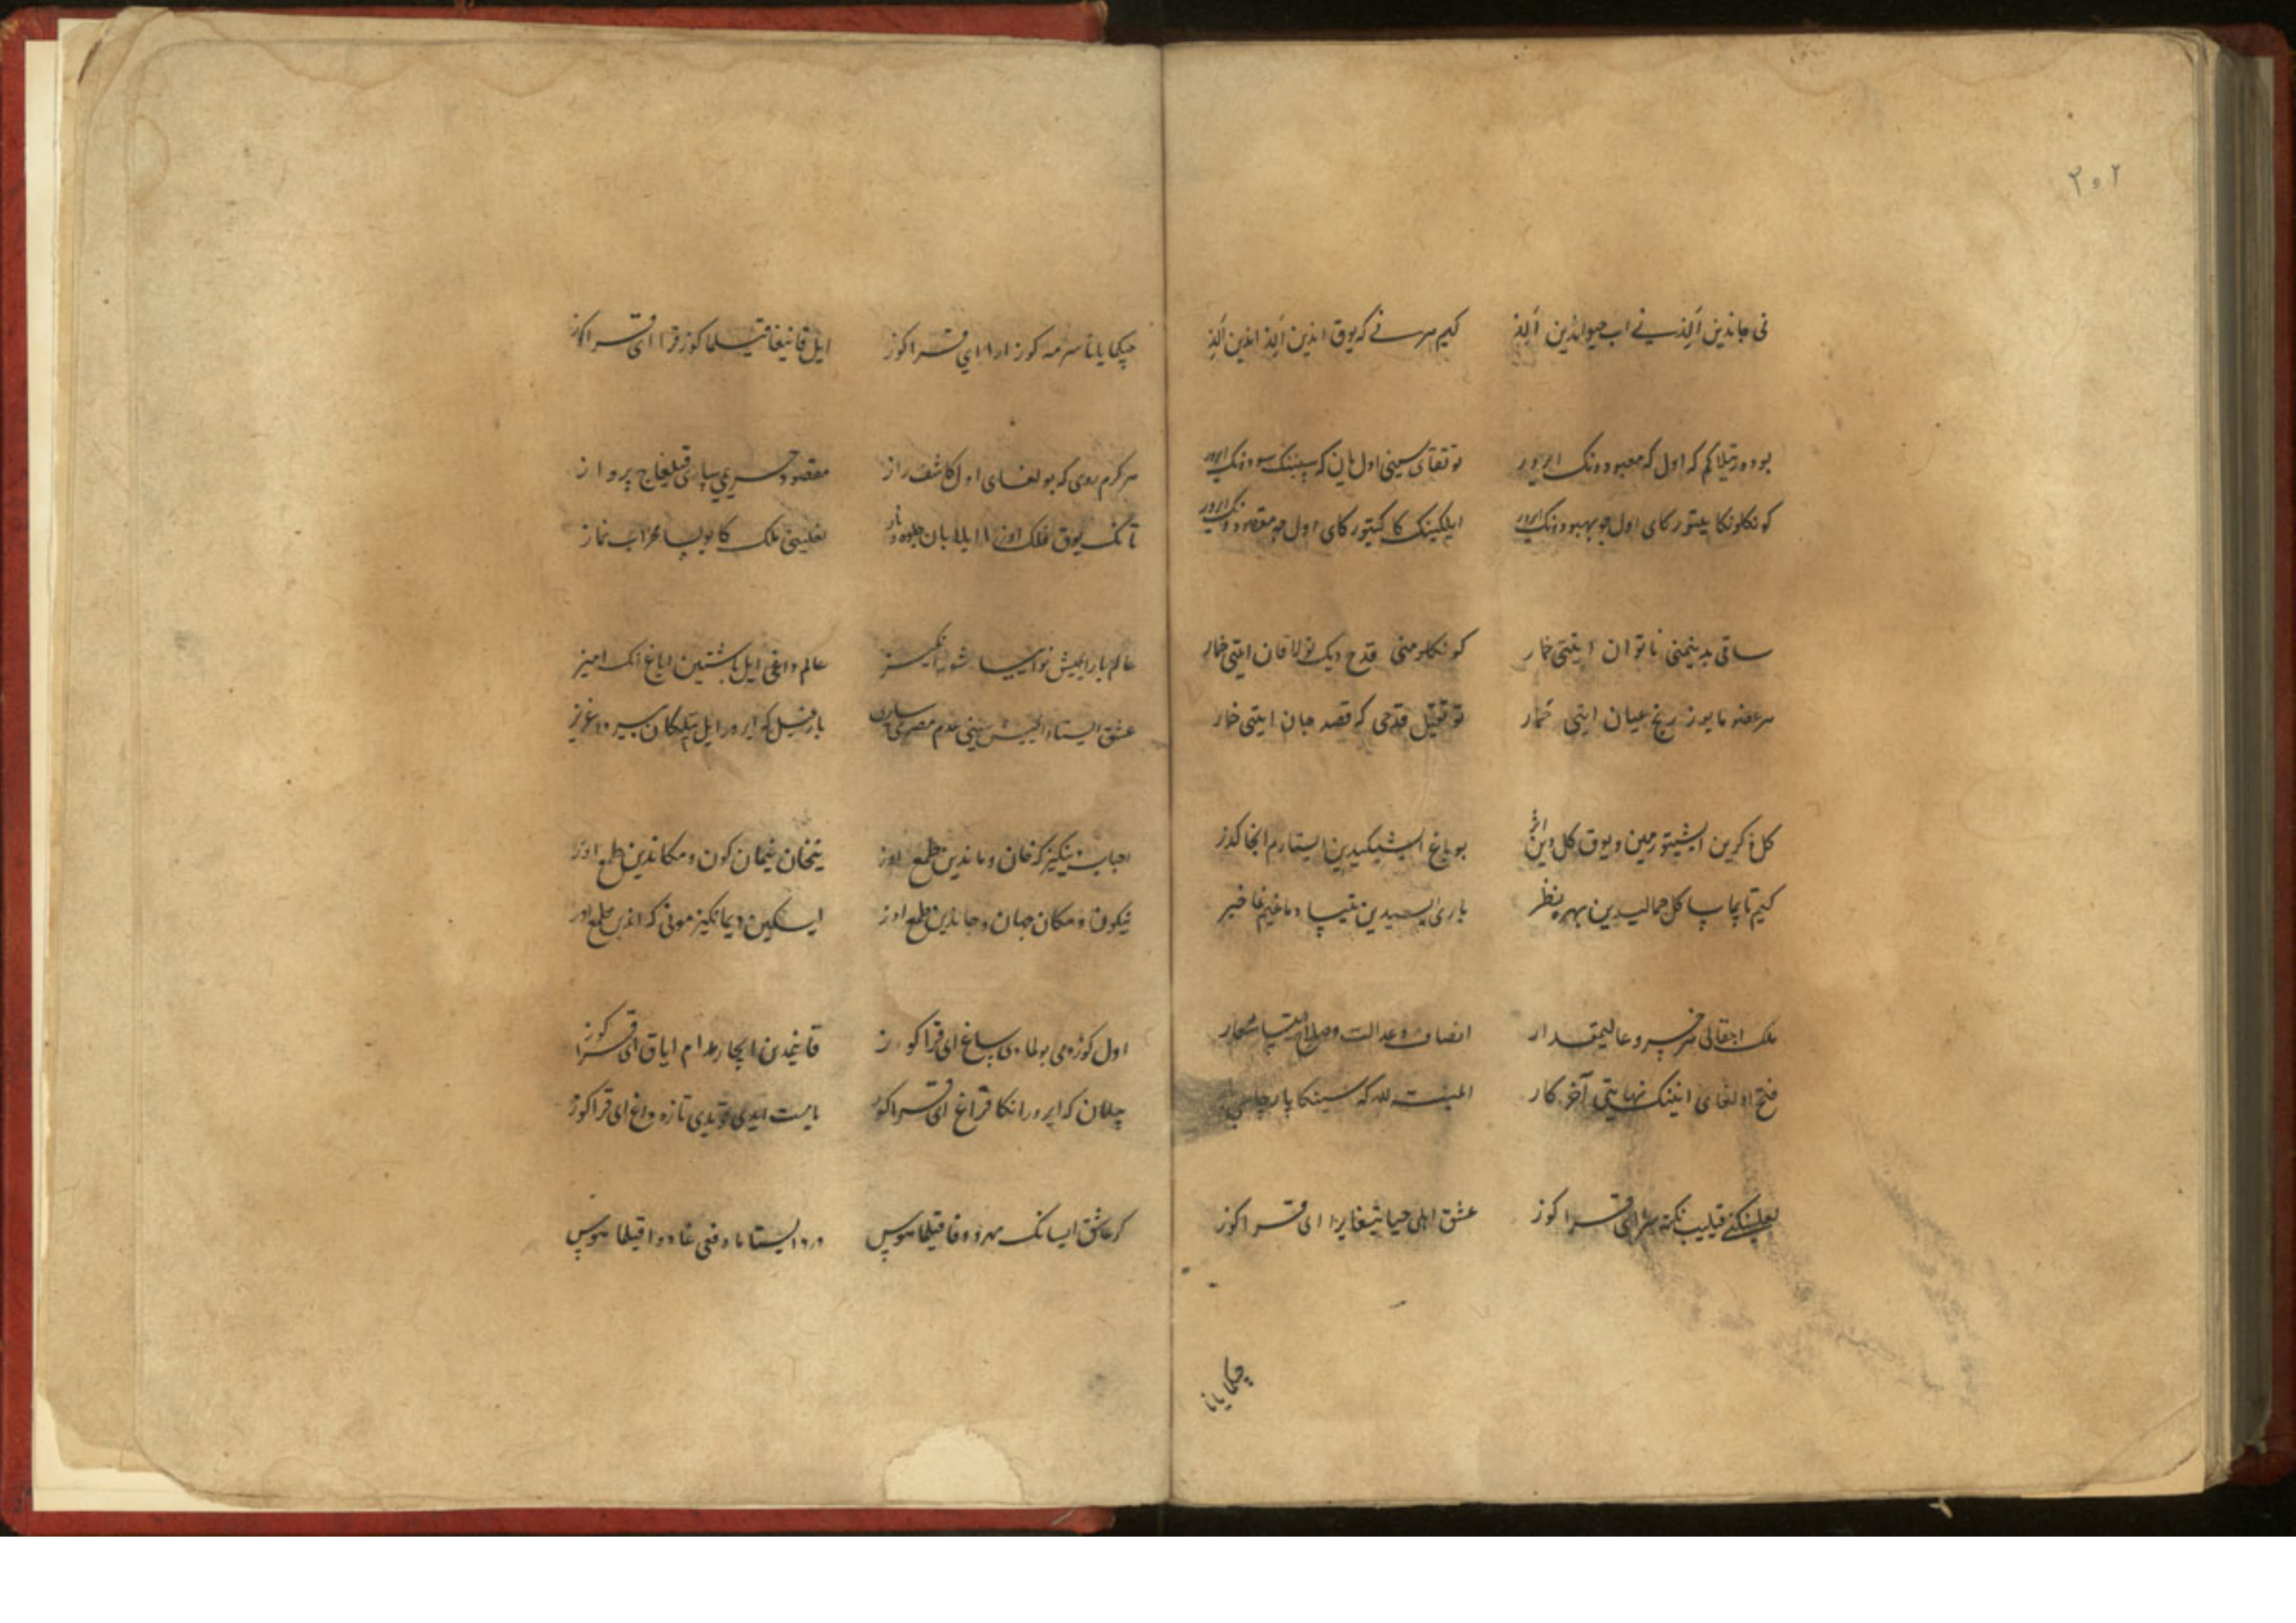 ۲۰۲
نی جاندین آلذ نے اب حیواندین آلذ کیم هر نے که یوق اندین آلذ اندین آلذ
بو دور تیلاکم که اول که معبودونک ایرور توتقای سینی اول یان که سینینک سودونک ایرور
کونکلونکا یتورکای اول جو بهبودونک ایرور ایلکینک کا کیتورکای اول جو مقصودونک ایرور
ساقی بدنیمنی ناتوان ایتتی خمار کونکلومنی قدح دیک تولا قان ایتتی خمار
هر عضوما یوز رنج عیان ایتی خمار توتقیل قدحی که قصد جان ایتتی خمار
کل ذکرین ایشیتورمین و یوق کل دین اثر بو باغ ایشیکیدین ایستارم انجا کذر
کیم تابجا سا کل جمالیدین بهره نظر باری ایسیدین یتیسا دماغیمغا خبر
ملک اجقالی هر خسرو عالیمقدار انصاف و عدالت و صلاح ایتسا شعار
فتح اولغای انینک نهایتی آخر کار المنة لله که سینکا بار
لعلینکنی قیلیب نکته سرا ای قرا کوز عشق اهلی حیاتیغا یرا ای قرا کوز
چیکما یانا
چیکما یانا سرمه کوز ارا ای قرا کوز ایل قانیغا قیلما کوز قرا ای قرا کوز
هر کرم روی که بولغای اول کاشف راز مقصود حریمی ساری قیلغاج پرواز
تانک یوق فلک اوزرا ایلابان جلوه ناز نعلینی ملک کا بولسا محراب نماز
عالم بارا ایمیش نوایسا شورانکیز عالم داغی ایل باشتین ایاغ رنک امیز
عشق ایستادا ایمیش سینی عدم مصری ساری بارغیل که ایرور ایل تیلکان سیر و عزیز
احباب نینکیز که خان و ماندین طمع اوز یتخان ییمان کون و مکاندین طمع اوز
نی کون و مکان جهان و جاندین طمع اوز ایسکین دیمانکیز مونی که اندین طمع اوز
اول کوزومی بولمادی ساغ ای قرا کوز قانیمدین ایجار مدام ایاق ای قرا کوز
جیلان که ایرور انکا قراغ ای قرا کوز یا مست ایدی قویدی تازه داغ ای قرا کوز
کر عاشق ایسانک مهر و وفا قیلما هوس درد ایستا و دفعی غا دوا قیلما هوس